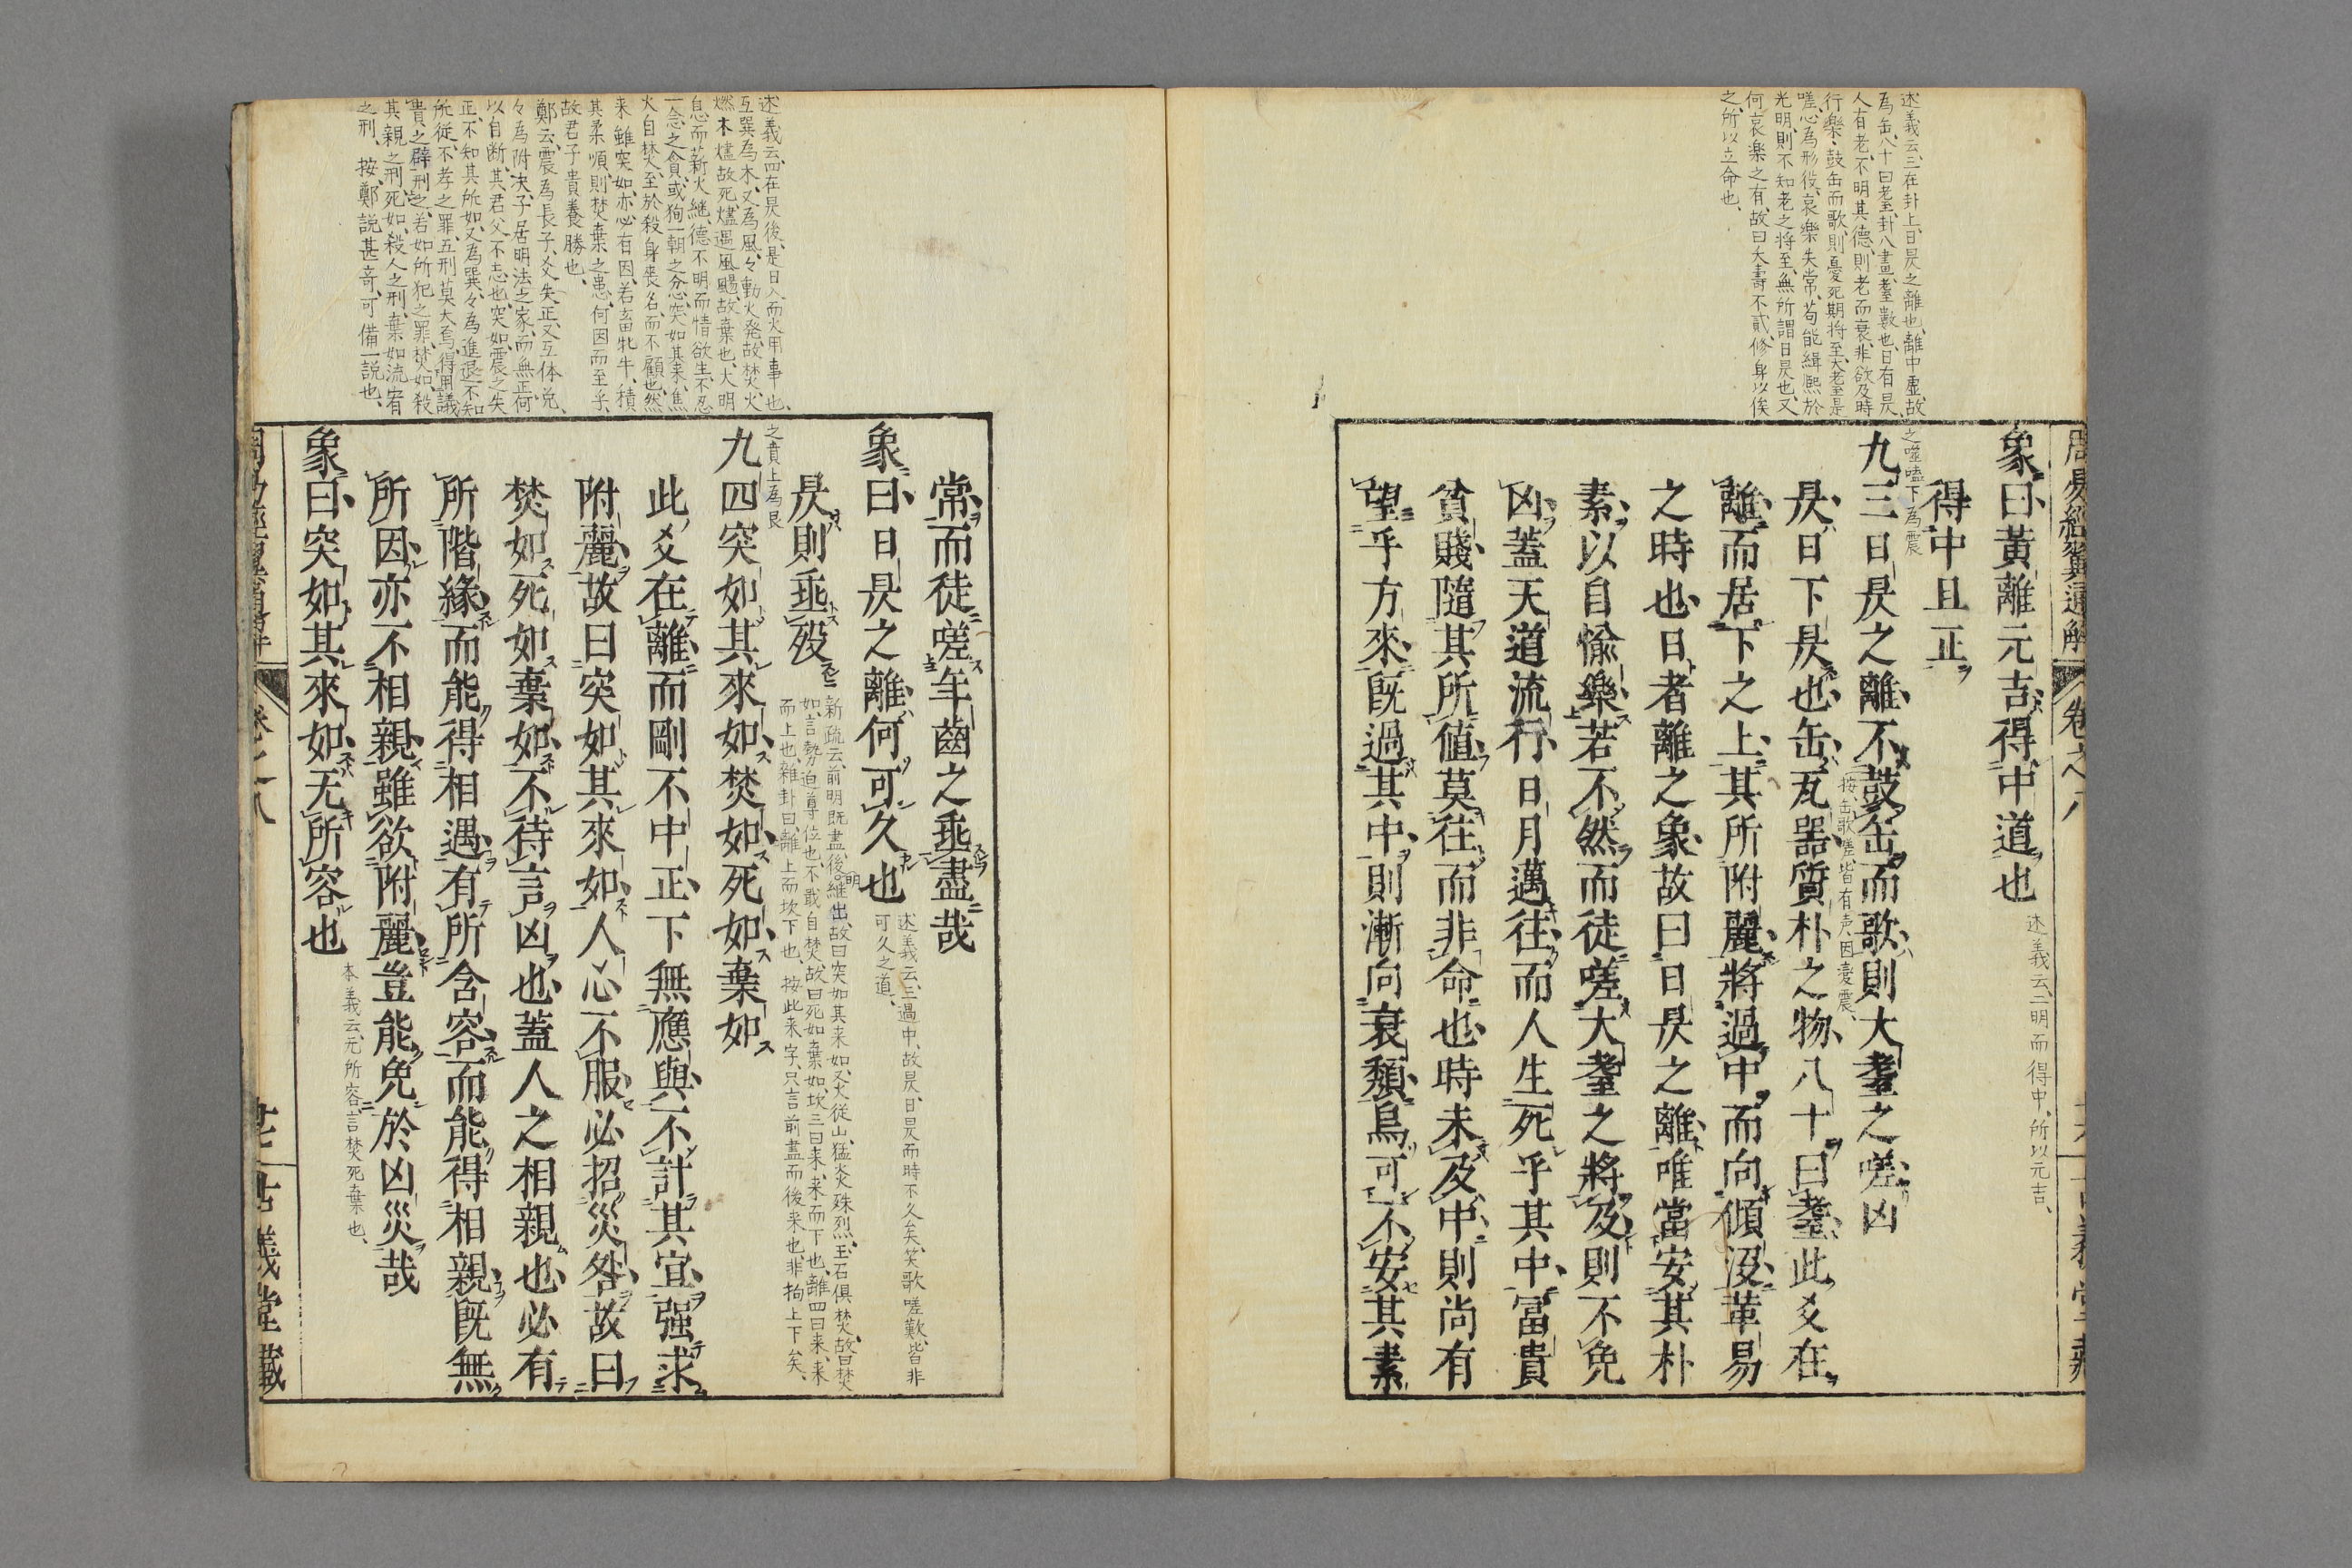 述義云、三在卦上、日昃之離也、離中虛、故
為缶、八十曰耋、卦八畫、耋數也、日有昃、
人有老、不明其德、則老而衰、非欲及時
行樂、鼓缶而歌、則憂死期将至、大耋是
嗟、心為形役、哀樂失常、苟能緝熙於
光明、則不知老之将至、無所謂日昃也、又
何哀楽之有、故曰夭壽不貳、修身以俟
之、所以立命也、
象曰黃離元吉得中道也
述義云、二明而得中、所以元吉、
得中且正
之噬嗑下為震
九三日昃之離不鼓缶而歌則大耋之嗟凶
按、缶歌嗟皆有声、因変震、
昃日下昃也缶瓦器質朴之物八十曰耋此爻在
離而居下之上其所附麗將過中而向傾沒革易
之時也日者離之象故曰日昃之離唯當安其朴
素以自愉樂若不然而徒嗟大耋之將及則不免
凶蓋天道流行日月邁往而人生死乎其中富貴
貧賤隨其所値莫往而非命也時未及中則尚有
望乎方來旣過其中則漸向衰頽烏可不安其素
述義云、四在昃後、是日入而火用事也、
互巽為木、又為風、々動火発、故焚、火
燃木燼故死、燼遇風颺、故棄也、大明
息而薪火継、德不明而情欲生、不忍
一念之貪、或狥一朝之忿、突如其来、焦
火自焚、至於殺身喪名、而不顧也、然
来雖突如、亦必有因、若畜牝牛、積
其柔順、則焚棄之患、何因而至乎、
故君子貴養勝也、
鄭云、震為長子、爻失正、又互体兌、
々為附決、子居明法之家、而無正、何
以自断、其君父不志也、突如、震之失
正、不知其所如、又為巽、々為進退、不知
所従、不孝之罪、五刑莫大焉、得用議
貴之辟刑之、若如所犯之罪、焚如、殺
其親之刑、死如、殺人之刑、棄如流宥
之刑、按、鄭説甚竒、可備一説也、
常而徒嗟年齒之垂盡哉
象曰日昃之離何可久也
述義云、三過中、故昃、日昃而時不久矣、笑歌嗟歎、皆非
可久之道、
昃則垂歿
新疏云、前明既盡、後明継出、故曰突如其来如、又火従山、猛炎殊烈、玉石倶焚、故曰焚
如、言勢迫尊位也、不戢自焚、故曰死如棄如、坎三曰来、来而下也、離四曰来、来
而上也、雜卦曰、離上而坎下也、按此来字、只言前盡而後来也、非拘上下矣、
之賁上為艮
九四突如其來如焚如死如棄如
此爻在離而剛不中正下無應與不計其宜强求
附麗故曰突如其來如人心不服必招災咎故曰
焚如死如棄如不待言凶也蓋人之相親也必有
所階緣而能得相遇有所含容而能得相親旣無
所因亦不相親雖欲附麗豈能免於凶災哉
象曰突如其來如无所容也
本義云、无所容、言焚死棄也、